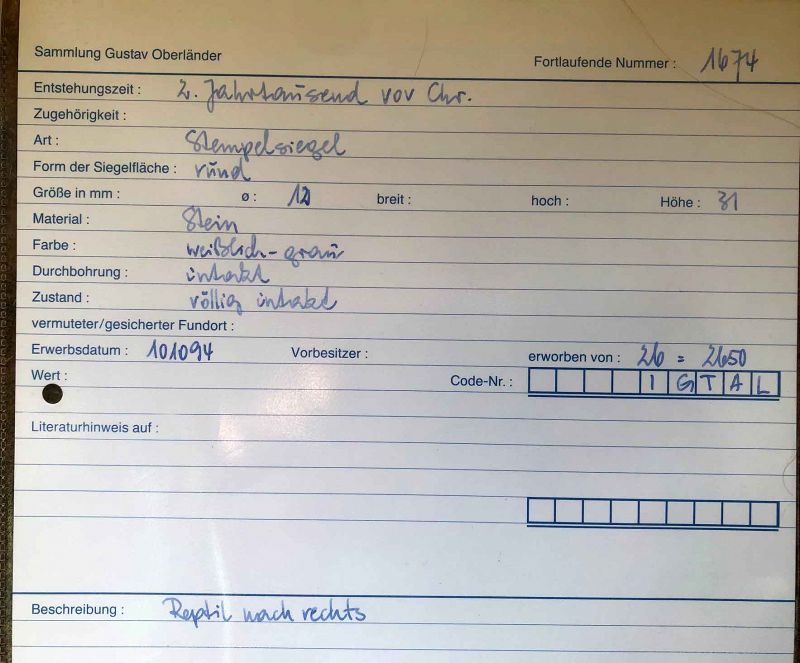 Sammlung Gustav Oberländer Fortlaufende Nummer : 1674
Entstehungszeit : 2. Jahrtausend vor Chr.
Zugehörigkeit :
Art : Stempelsiegel
Form der Siegelfläche : rund
Größe in mm : ø : 12 breit : hoch : Höhe : 31
Material : Stein
Farbe : weißlich-grau
Durchbohrung : intakt
Zustand : völlig intakt
vermuteter/gesicherter Fundort :
Erwerbsdatum : 101094 Vorbesitzer : erworben von : 26 = 2650
Wert : Code-Nr. : I G T A L
Literaturhinweis auf :
Beschreibung : Reptil nach rechts